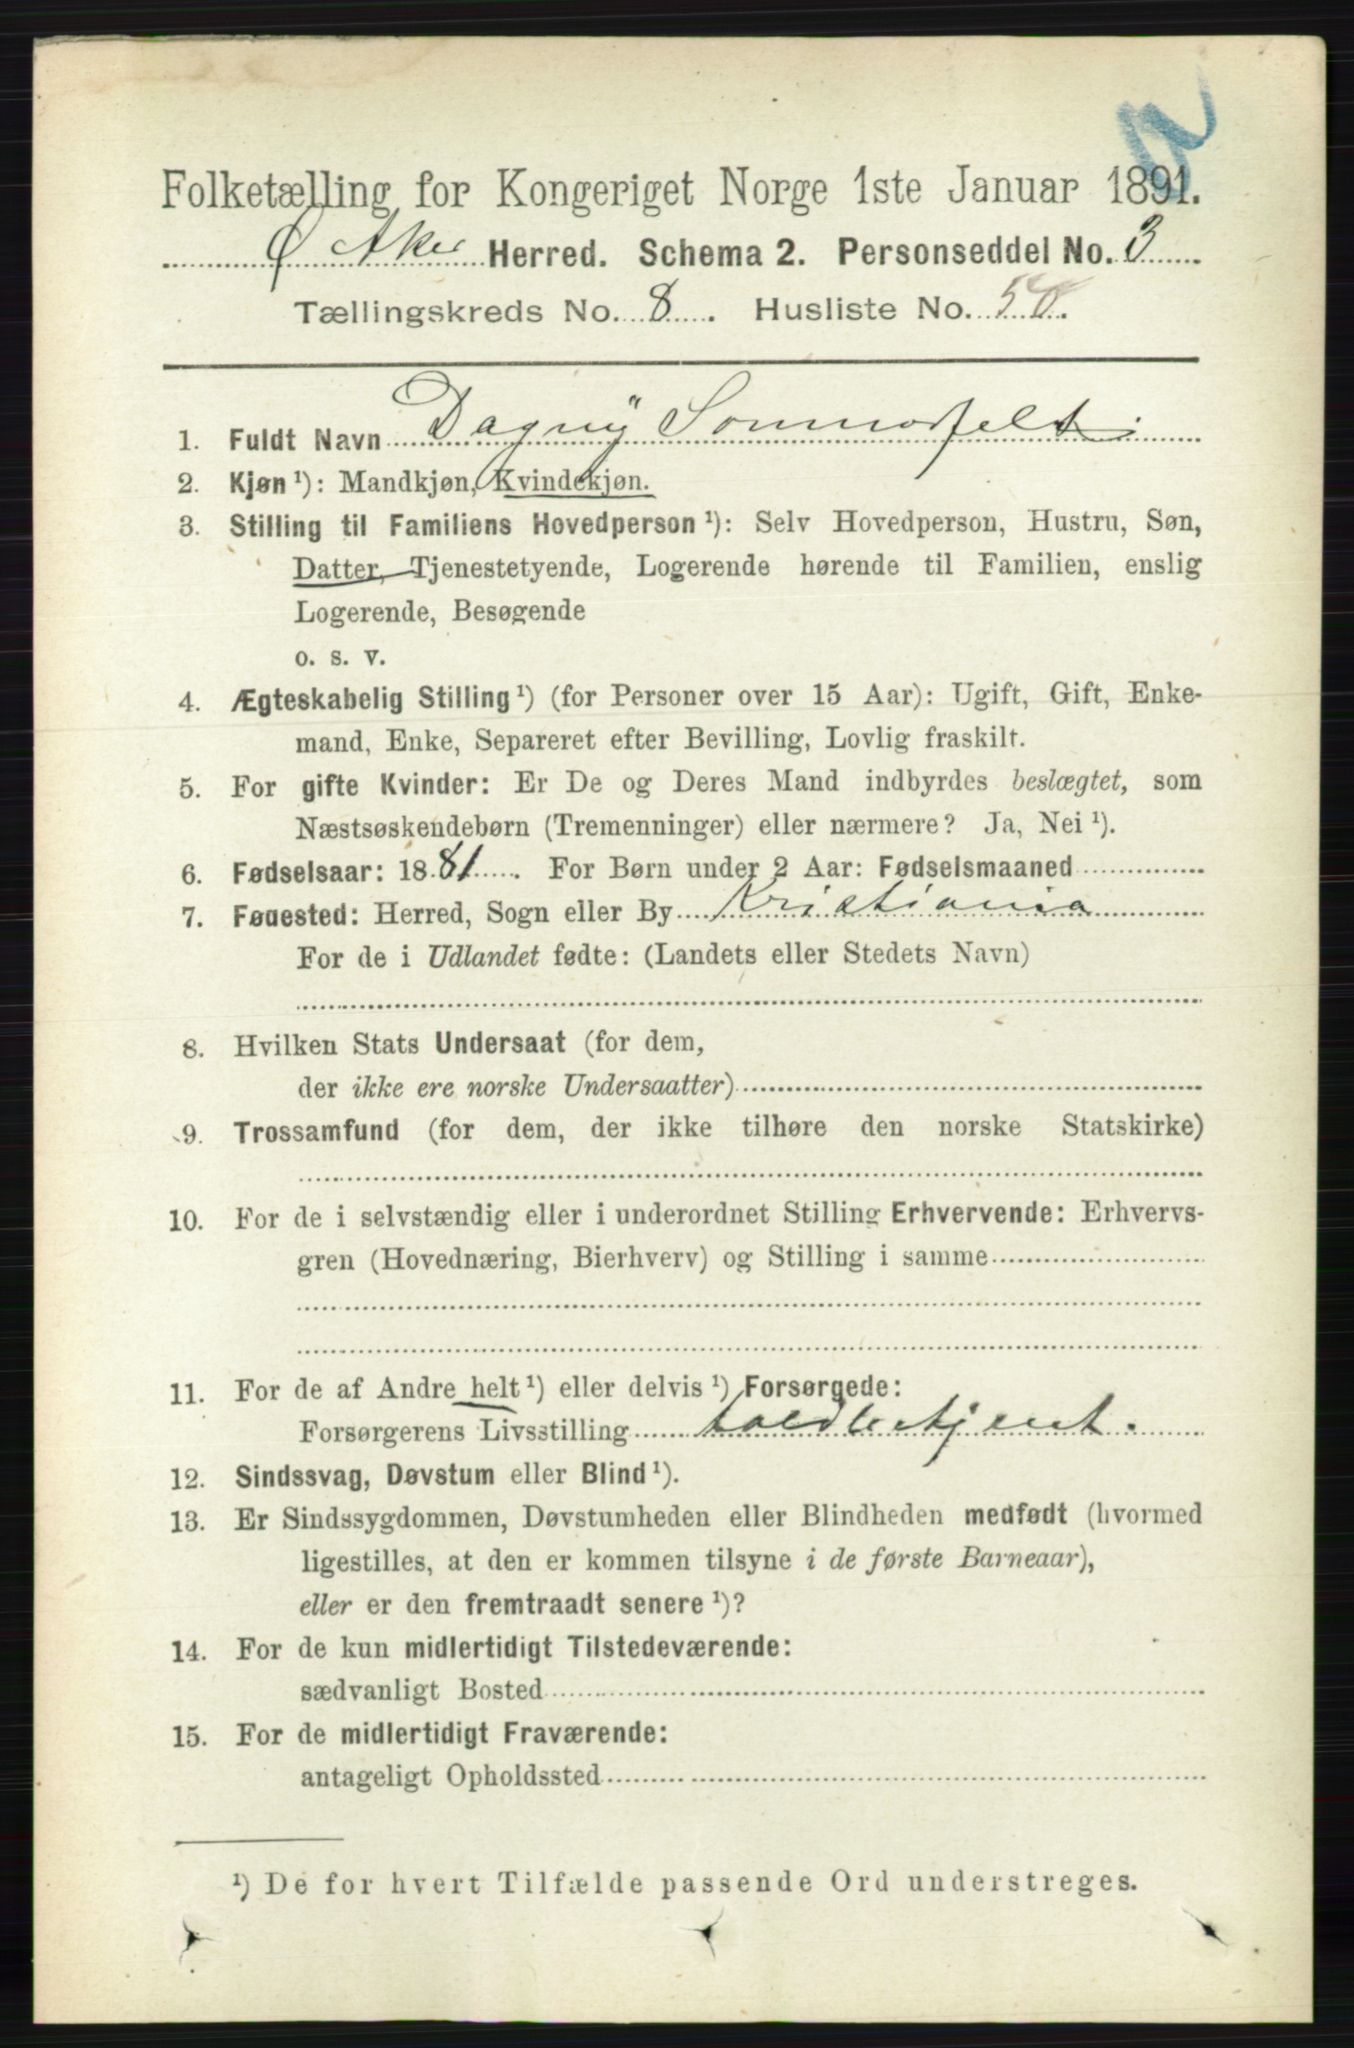 Folketælling for Kongeriget Norge 1ste Januar 1891.
Ø Aker Herred. Schema 2. Personseddel No. 3
Tællingskreds No. 8. Husliste No. 50.
1. Fuldt Navn Dagny Sommerfelt
2. Kjøn ¹): Mandkjøn, Kvindekjøn.
3. Stilling til Familiens Hovedperson ¹): Selv Hovedperson, Hustru, Søn,
Datter, Tjenestetyende, Logerende hørende til Familien, enslig
Logerende, Besøgende
o. s. v.
4. Ægteskabelig Stilling ¹) (for Personer over 15 Aar): Ugift, Gift, Enke-
mand, Enke, Separeret efter Bevilling, Lovlig fraskilt.
5. For gifte Kvinder: Er De og Deres Mand indbyrdes beslægtet, som
Næstsøskendebørn (Tremenninger) eller nærmere? Ja, Nei ¹).
6. Fødselsaar: 1881. For Børn under 2 Aar: Fødselsmaaned
7. Føuested: Herred, Sogn eller By Kristiania
For de i Udlandet fødte: (Landets eller Stedets Navn)
8. Hvilken Stats Undersaat (for dem,
der ikke ere norske Undersaatter)
9. Trossamfund (for dem, der ikke tilhøre den norske Statskirke)
10. For de i selvstændig eller i underordnet Stilling Erhvervende: Erhvervs-
gren (Hovednæring, Bierhverv) og Stilling i samme
11. For de af Andre helt ¹) eller delvis ¹) Forsørgede:
Forsørgerens Livsstilling toldbetjent.
12. Sindssvag, Døvstum eller Blind ¹).
13. Er Sindssygdommen, Døvstumheden eller Blindheden medfødt (hvormed
ligestilles, at den er kommen tilsyne i de første Barneaar),
eller er den fremtraadt senere ¹)?
14. For de kun midlertidigt Tilstedeværende:
sædvanligt Bosted
15. For de midlertidigt Fraværende:
antageligt Opholdssted
¹) De for hvert Tilfælde passende Ord understreges.